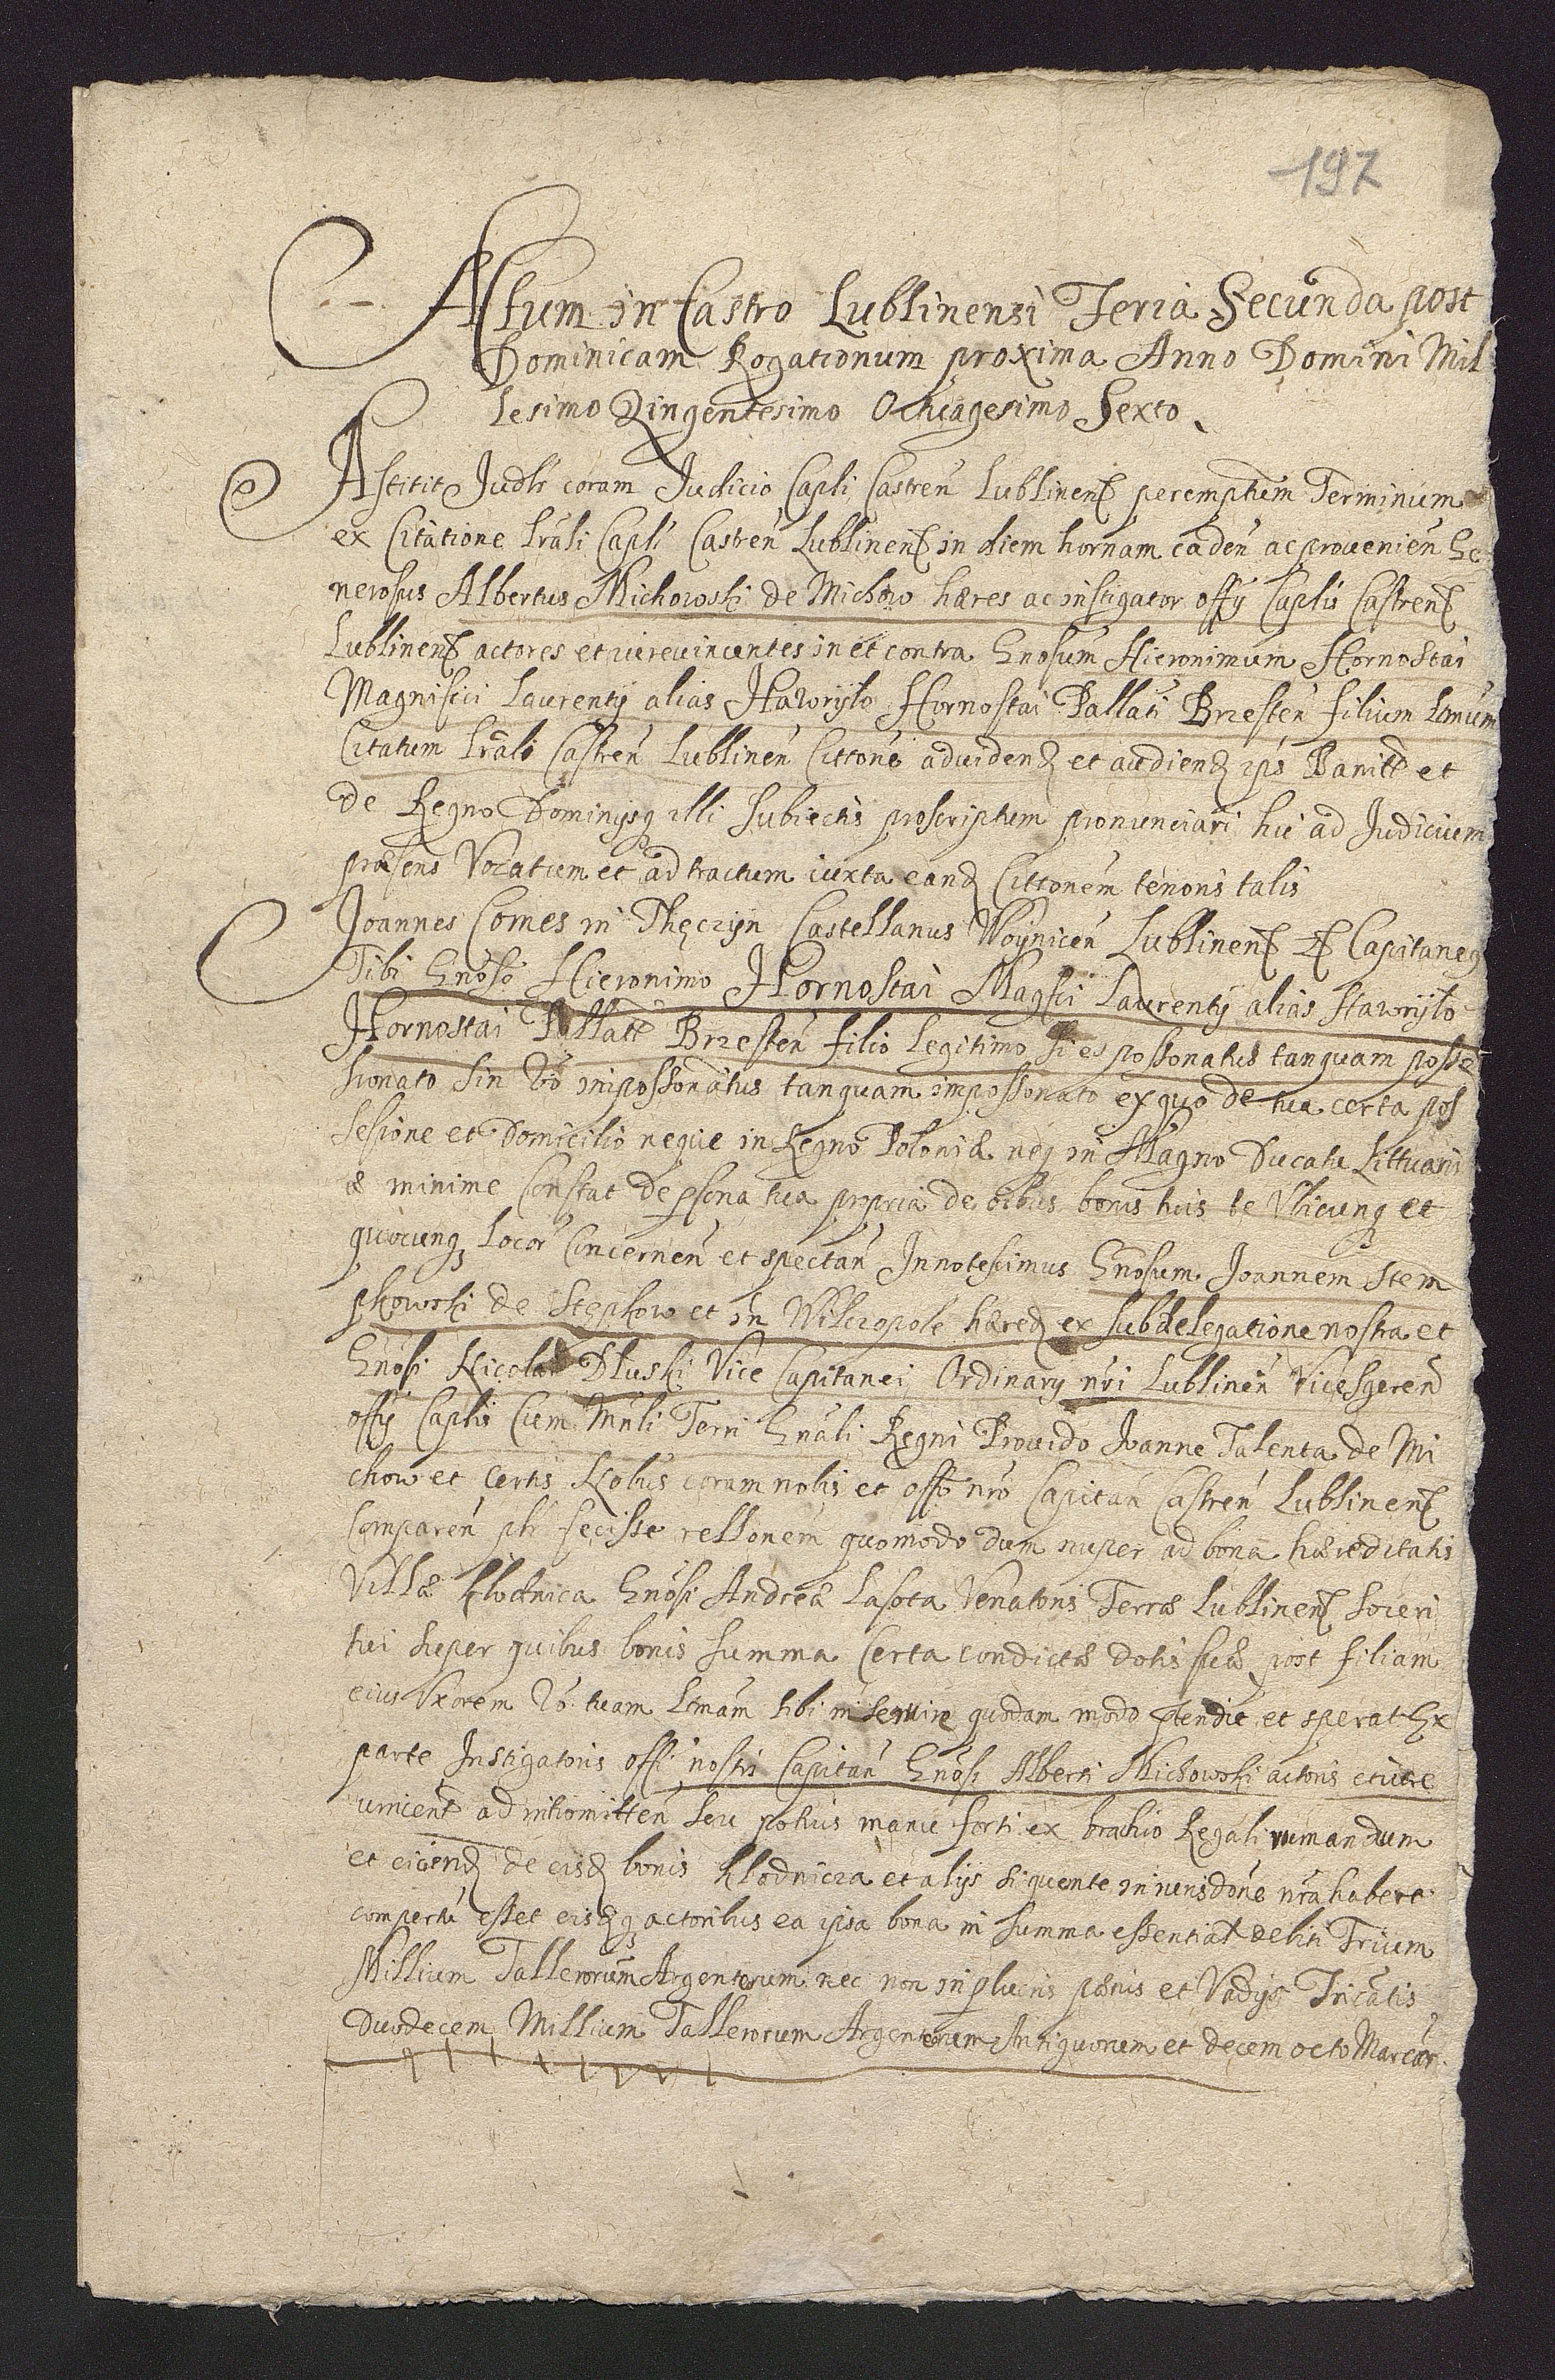 197
Actum in Castro Lublinensi Feria Secunda post
Dominicam Rogationum proxima Anno Domini Mil
lesimo Qingentesimo Octuagesimo Sexto
Astitit Judlr coram Judicio Capli Castren Lublinen peremptum Terminum
ex Citatione lrali Capli Castren Lublinen in diem hornam caden ac provenien Ge
nerosus Albertus Michowski de Michow hæres ac instigator offy Caplis Castren
Lublinen actores et iurevincentes in et contra Gnosum Hieronimum Hornostai
Magnifici Laurenty alias Hawryło Hornostai Pallati Brzesten filium
Citatum lrali Castren Lublinen Cittone ad vidend et audiend ipo Banitt et
de Regno Dominysq illi Subiectis proscriptum pronunciari hic ad Judicium
præsens Vocatum et adtractum iuxta eand Cittonem tenoris talis
Joannes Comes in Thęczyn Castellanus Woynicen Lublinen Capitaneq
Tibi Gnoso Hieronimo Hornostai Magfici Laurenty alias Hawryło
Hornostai Pallatt Brzesten filio legitimo si es possonatus tanquam posse
sionato sin vo inpossonatus tanquam impossonato ex quo de tua certa pos
sesione et Domicilio neque in Regno Poloniæ neq in Magno Ducatu Littuani
æ minime Constat de psona tua propria de oibus bonis tuis te Vbicunq et
quocunq Locor Concernen et spectan Innotescimus Gnosum Joannem Stem
pkowski de Stępkow et in Wilczopole hæred ex subdelegatione nostra et
Gnosi Nicolai Dłuski Vice Capitanei Ordinary nri Lublinen Vicesgeren
offy Caplis Cum Mnli Terri Gnali Regni Provido Joanne Talenta de Mi
chow et Certis Nobus coram nobis et offo nro Capitan Castren Lublinen
Comparen plr fecisse rellonem quomodo dum nuper ad bona hæreditatis
Villæ Kłodnica Gnosi Andreæ Lasota Venatoris Terræ Lublinen Soceri
tui super quibus bonis summa Certa condictæ dotis suæ post filiam
eius Vxorem vo tuam tibi inservire quodam modo ptendit et sperat Ex
parte Instigatoris offi nostri Capitan Gnosi Alberti Michowski actoris et iure
vincent ad intromitten seu potius manu forti ex brachio Regali rumandum
et eiciend de eisd bonis Kłodnicza et alijs si quente in iurisdone nra habere
compertu esset eisdq actoribus ea ipsa bona in summa essentiali debiti Trium
Millium Tallerorum Argenteorum nec non in lucris pænis et Vadys Tricatis
Duodecem Millium Tallerorum Argenteorum Antiquorum et decem octo Marcar